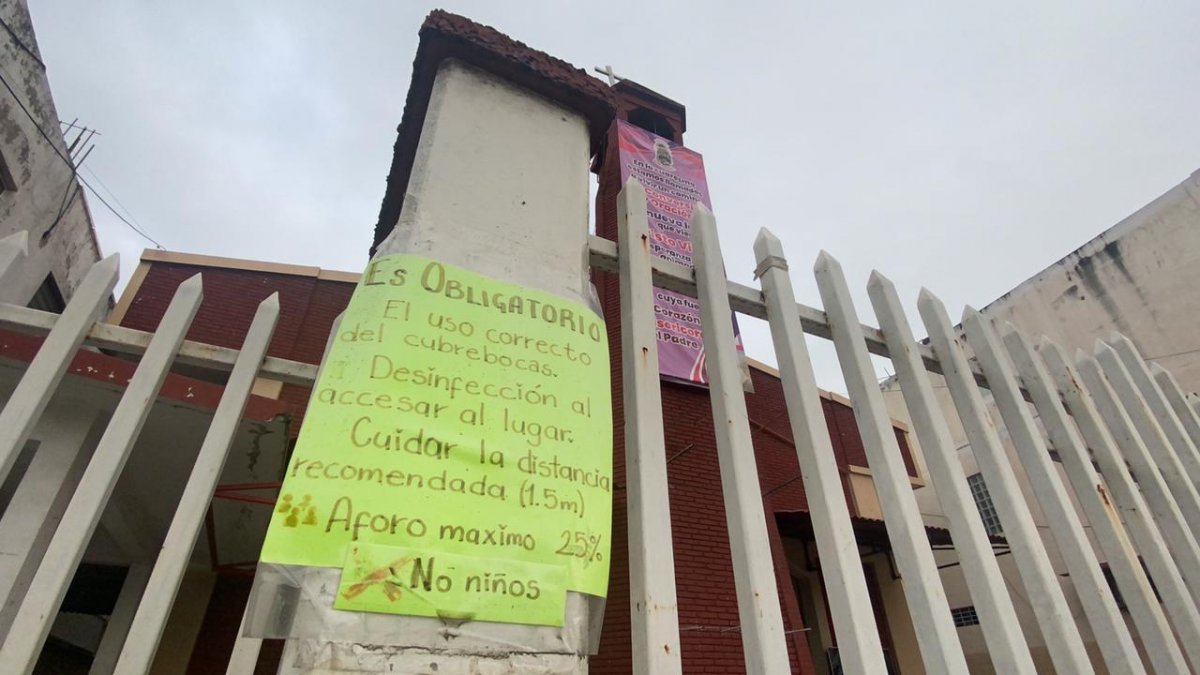 Es Obligatorio
El uso correcto
del cubrebocas.
Desinfección al
accesar al lugar.
Cuidar la distancia
recomendada (1.5m)
Aforo maximo 25%
No niños
que vi
cuya fu
Corazón
del Padre